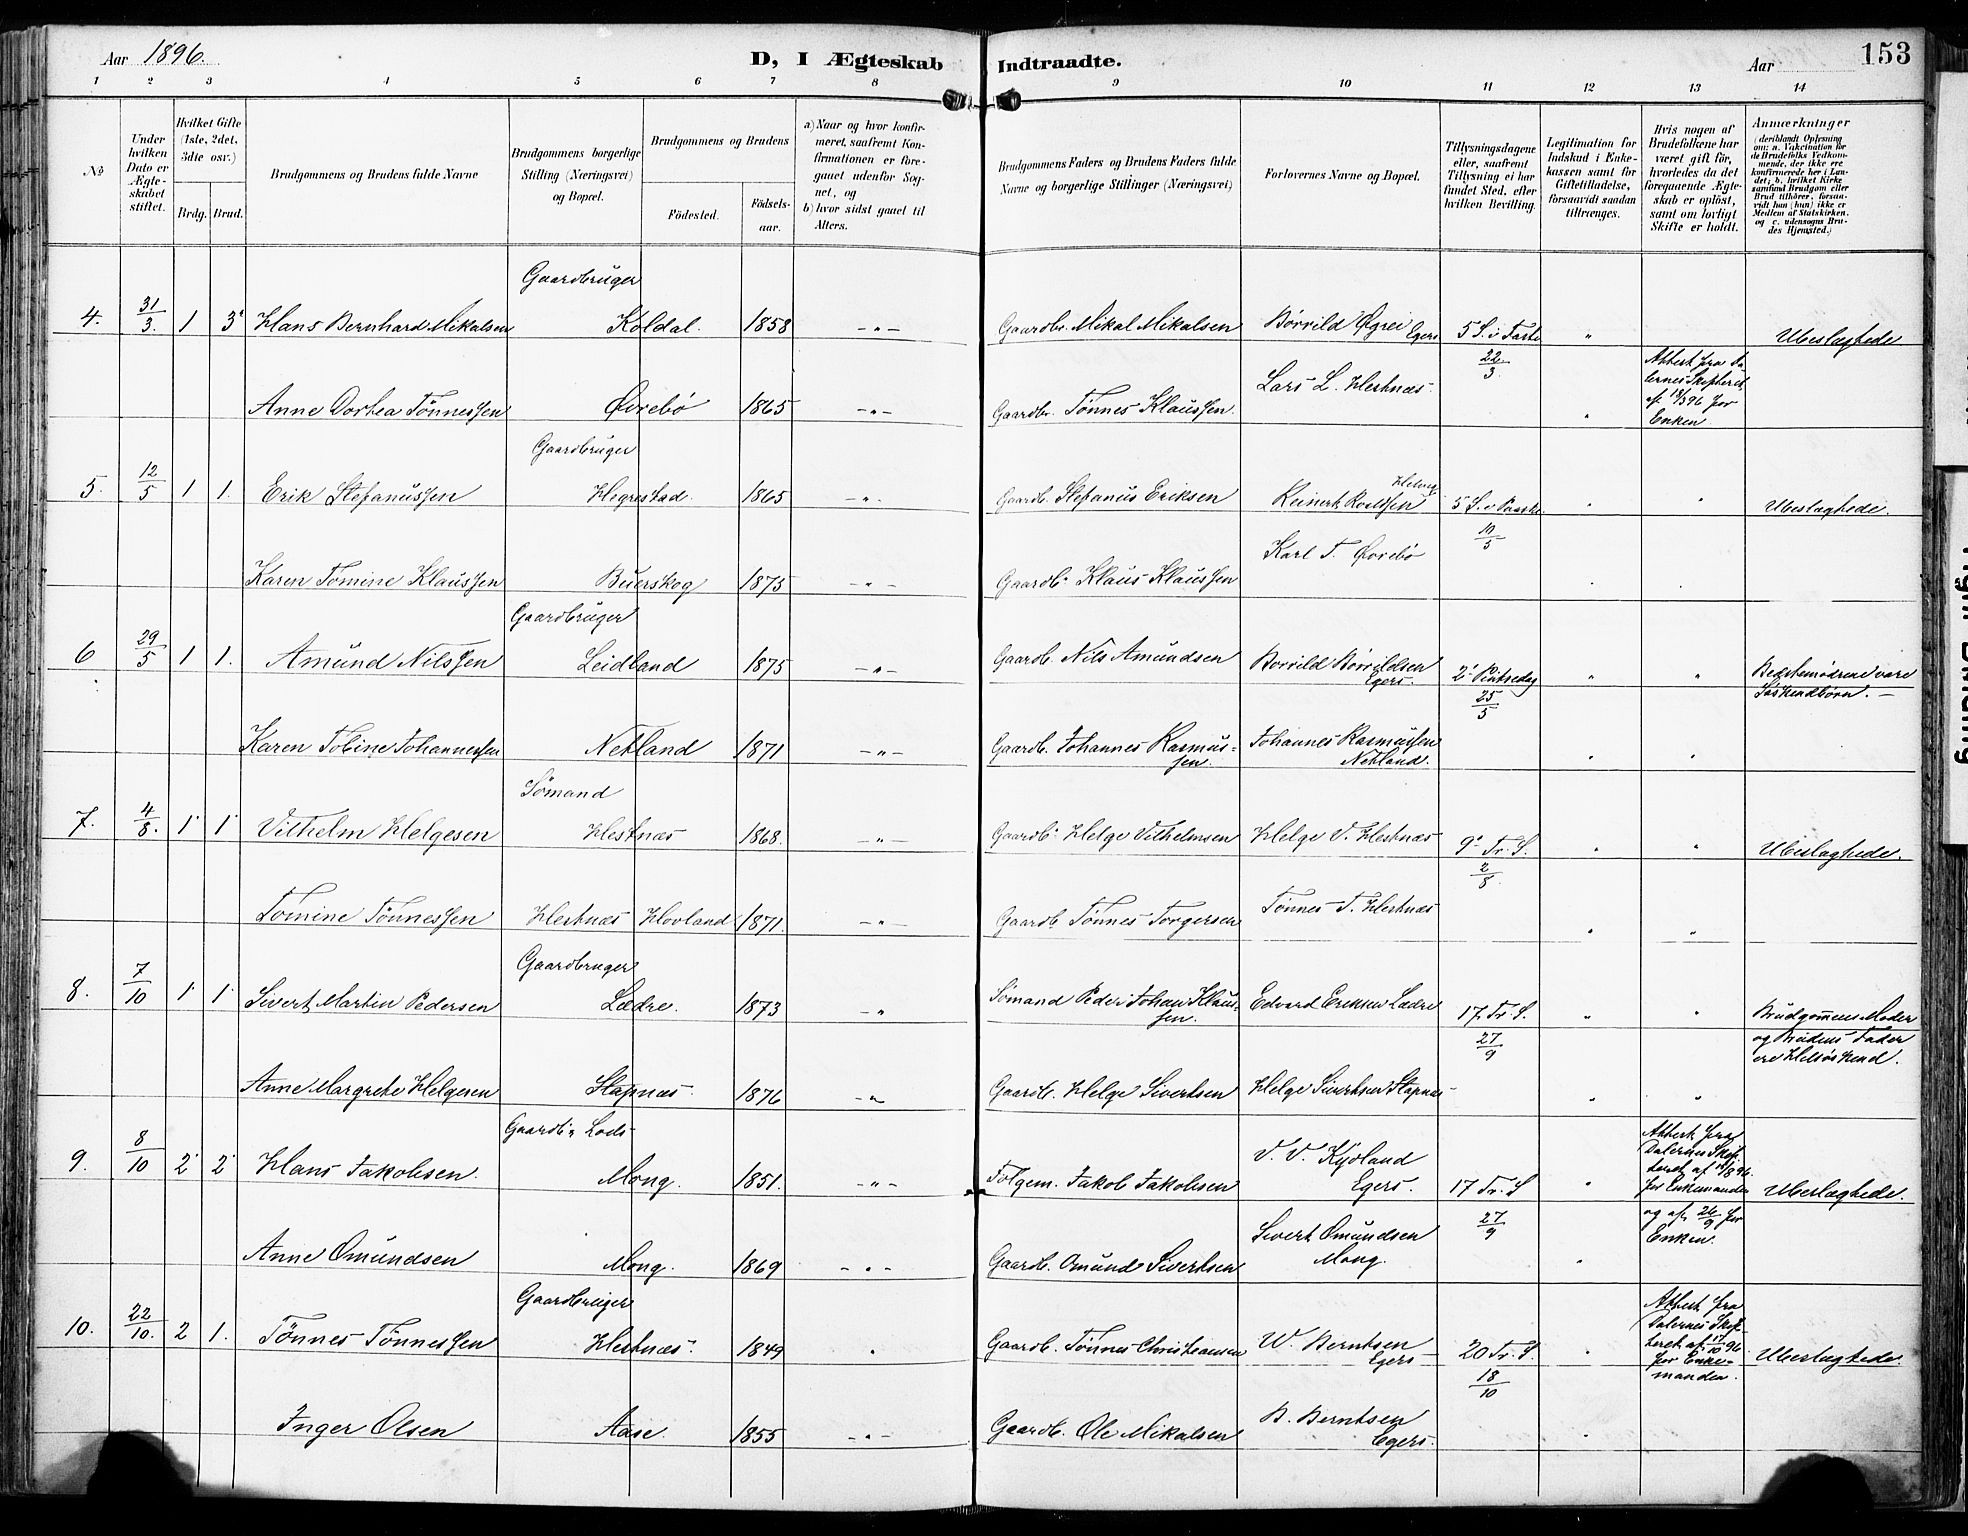 Aar 1896.
D, I Ægteskab Indtraadte.
Aar 153
1 2 3 4 5 6 7 8 9 10 11 12 13 14
No
Under hvilken Dato er Ægteskabet stiftet.
Hvilket Gifte (1ste, 2det, 3die osv.)
Brdg. Brud.
Brudgommens og Brudens fulde Navne
Brudgommens borgerlige Stilling (Næringsvei) og Bopæl.
Brudgommens og Brudens
Födested.
Födsels-aar.
a) Naar og hvor konfirmeret, saafremt Konfirmationen er foregaaet udenfor Sognet, og
b) hvor sidst gaaet til Alters.
Brudgommens Faders og Brudens Faders fulde Navne og borgerlige Stillinger (Næringsvei)
Forlovernes Navne og Bopæl.
Tillysningsdagene eller, saafremt Tillysning ei har fundet Sted, efter hvilken Bevilling.
Legitimation for Indskud i Enkekassen samt for Giftetilladelse, forsaavidt saadan tiltrænges.
Hvis nogen af Brudefolkene har været gift för, hvorledes da det foregaaende Ægteskab er oplöst, samt om lovligt Skifte er holdt.
Anmærkninger
(deriblandt Oplysning om: a. Vakcination for de Brudefolks Vedkommende, der ikke ere konfirmerede her i Landet; b. hvilket Kirkesamfund Brudgom eller Brud tilhörer, forsaavidt han (hun) ikke er Medlem af Statskirken, og c. udensogns Brudes Hjemsted.)
Gaardbruger
4. 31/3. 1 3' Hans Bernhard Mikalsen Koldal. 1858 -"- Gaardbr. Mikal Mikalsen Børrild Øgrei Egers 5 S. i Faste " Ubeslægtede
22/3
Anne Dortea Tönnessen Øvrebö 1865 -"- Gaardbr. Tönnes Klaussen. Lars L. Hestnæs. " Attest fra Dalernes Skifteret af 18/3 96 for Enken
Gaardbruger
5. 12/5 1 1. Erik Stefanussen Hegrestad. 1865 -"- Gaardb. Stefanus Eriksen Reinert Roaldsen 5 S. e Paaske " " Ubeslægtede.
10/5
Karen Tomine Klaussen Buerskog 1875 -"- Gaardb. Klaus Klaussen Karl T. Øvrebö
Gaardbruger
6 29/5 1 1. Amund Nilssen Leidland 1875 -"- Gaardb. Nils Amundsen Borrild Börrildsen Egers. 2' Pintsedag " " Bedstemödrene vare Söskendbörn. -
25/5
Karen Tobine Johannessen Netland 1871 -"- Gaardb. Johannes Rasmussen. Johannes Rasmussen Netland. " "
Sömand
7. 4/8. 1 1 Vilhelm Helgesen Hestnæs 1868. -"- Gaardb. Helge Vilhelmsen Helge V. Hestnæs 9' Tr. S. " " Ubeslægtede.
2/8
Tomine Tönnessen Hestnæs Hovland 1871. -"- Gaardb. Tönnes Torgersen Tönnes T. Hestnæs " "
Gaardbruger
8. 7/10 1 1 Sivert Martin Pedersen Lædre. 1873 -" Sömand Peder Johan Klaussen. Edvard Eriksen Lædre 17. Tr. S. " " Brudgommens Moder og Brudens Fader ere Helsöskend.
27/9
Anne Margrete Helgesen Stapnæs. 1876 -" Gaardb. Helge Sivertsen Helge Sivertsen Stapnæs " "
Gaardb. Lods
9. 8/10 2 2 Hans Jakobsen. Mong. 1851. -"- Folgem. Jakob Jakobsen V. V. Kydland Egers. 17 Tr. S " Attest fra Dalernes Skifteret af 19/8 96. for Enkemanden og af 26/9 for Enken. Ubeslægtede.
27/9
Anne Omundsen Mong. 1869 -"- Gaardb. Omund Sivertsen Sivert Omundsen Mong. "
Gaardbruger
10. 22/10. 2 1. Tönnes Tönnessen Hestnæs. 1849 " Gaardb. Tönnes Christiansen W. Berntsen Egers 20 Tr. S. " Attest fra Dalernes Skifteret af 17/10 96 for Enkemanden. Ubeslægtede
18/10
Inger Olsen Aase. 1855 -"- Gaardb. Ole Mikalsen B. Berntsen Egers. "